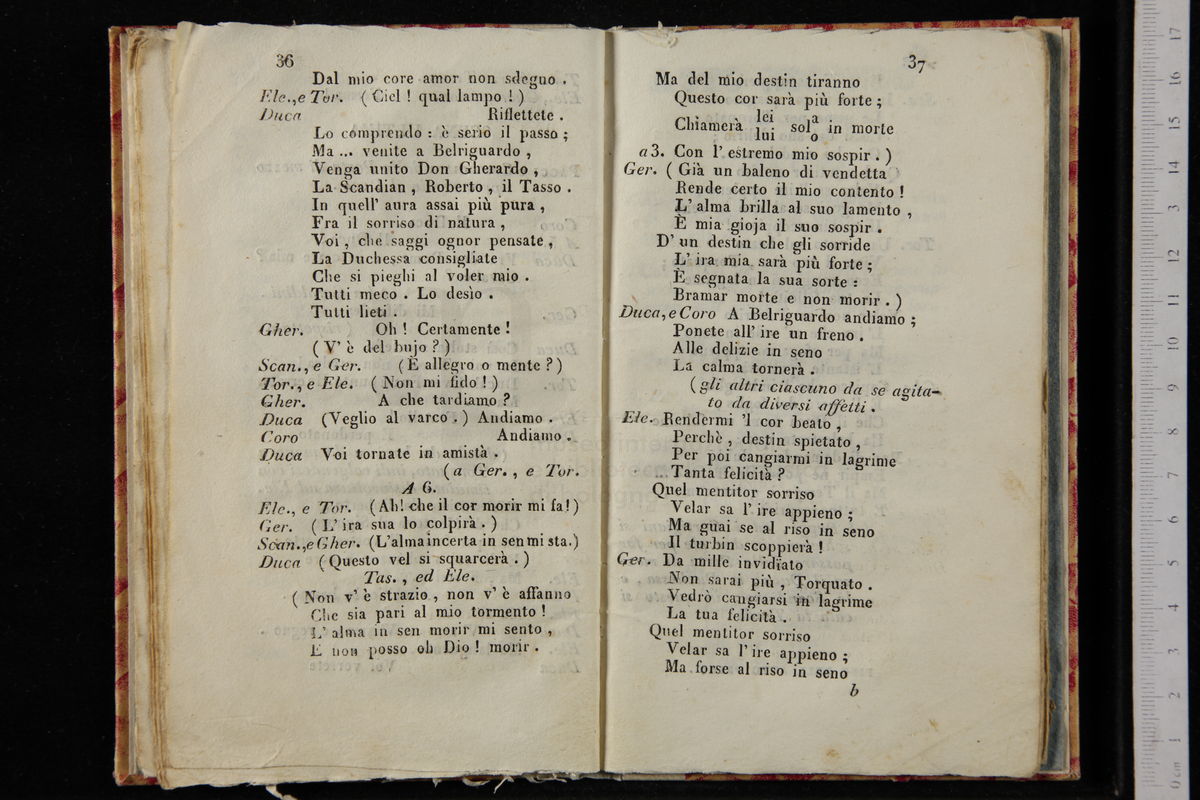 36
Dal mio core amor non sdegno .
Ele., e Tor. ( Ciel ! qual lampo ! )
Duca Riflettete .
Lo comprendo : è serio il passo ;
Ma ... venite a Belriguardo ,
Venga unito Don Gherardo ,
La Scandian , Roberto , il Tasso .
In quell' aura assai più pura ,
Fra il sorriso di natura ,
Voi , che saggi ognor pensate ,
La Duchessa consigliate
Che si pieghi al voler mio .
Tutti meco . Lo desìo .
Tutti lieti .
Gher. Oh ! Certamente !
( V' è del bujo ? )
Scan., e Ger. ( È allegro o mente ? )
Tor., e Ele. ( Non mi fido ! )
Gher. A che tardiamo ?
Duca (Veglio al varco .) Andiamo .
Coro Andiamo .
Duca Voi tornate in amistà .
( a Ger. , e Tor.
A 6.
Ele., e Tor. ( Ah! che il cor morir mi fa! )
Ger. ( L' ira sua lo colpirà . )
Scan., e Gher. (L'alma incerta in sen mi sta.)
Duca ( Questo vel si squarcerà . )
Tas. , ed Ele.
( Non v' è strazio , non v' è affanno
Che sia pari al mio tormento !
L' alma in sen morir mi sento ,
E non posso oh Dio ! morir .
37
Ma del mio destin tiranno
Questo cor sarà più forte ;
Chiamerà lei lui sol a o in morte
a 3. Con l' estremo mio sospir . )
Ger. ( Già un baleno di vendetta
Rende certo il mio contento !
L' alma brilla al suo lamento ,
È mia gioja il suo sospir .
D' un destin che gli sorride
L' ira mia sarà più forte ;
È segnata la sua sorte :
Bramar morte e non morir . )
Duca, e Coro A Belriguardo andiamo ;
Ponete all' ire un freno .
Alle delizie in seno
La calma tornerà .
( gli altri ciascuno da se agita-
to da diversi affetti .
Ele. Rendermi 'l cor beato ,
Perchè , destin spietato ,
Per poi cangiarmi in lagrime
... Tanta felicità ?
Quel mentitor sorriso
Velar sa l' ire appieno ;
Ma guai se al riso in seno
Il turbin scoppierà !
Ger. Da mille invidiato
Non sarai più , Torquato .
Vedrò cangiarsi in lagrime
La tua felicità .
Quel mentitor sorriso
Velar sa l' ire appieno ;
Ma forse al riso in seno
b
0 cm 1 2 3 4 5 6 7 8 9 10 11 12 13 14 15 16 17